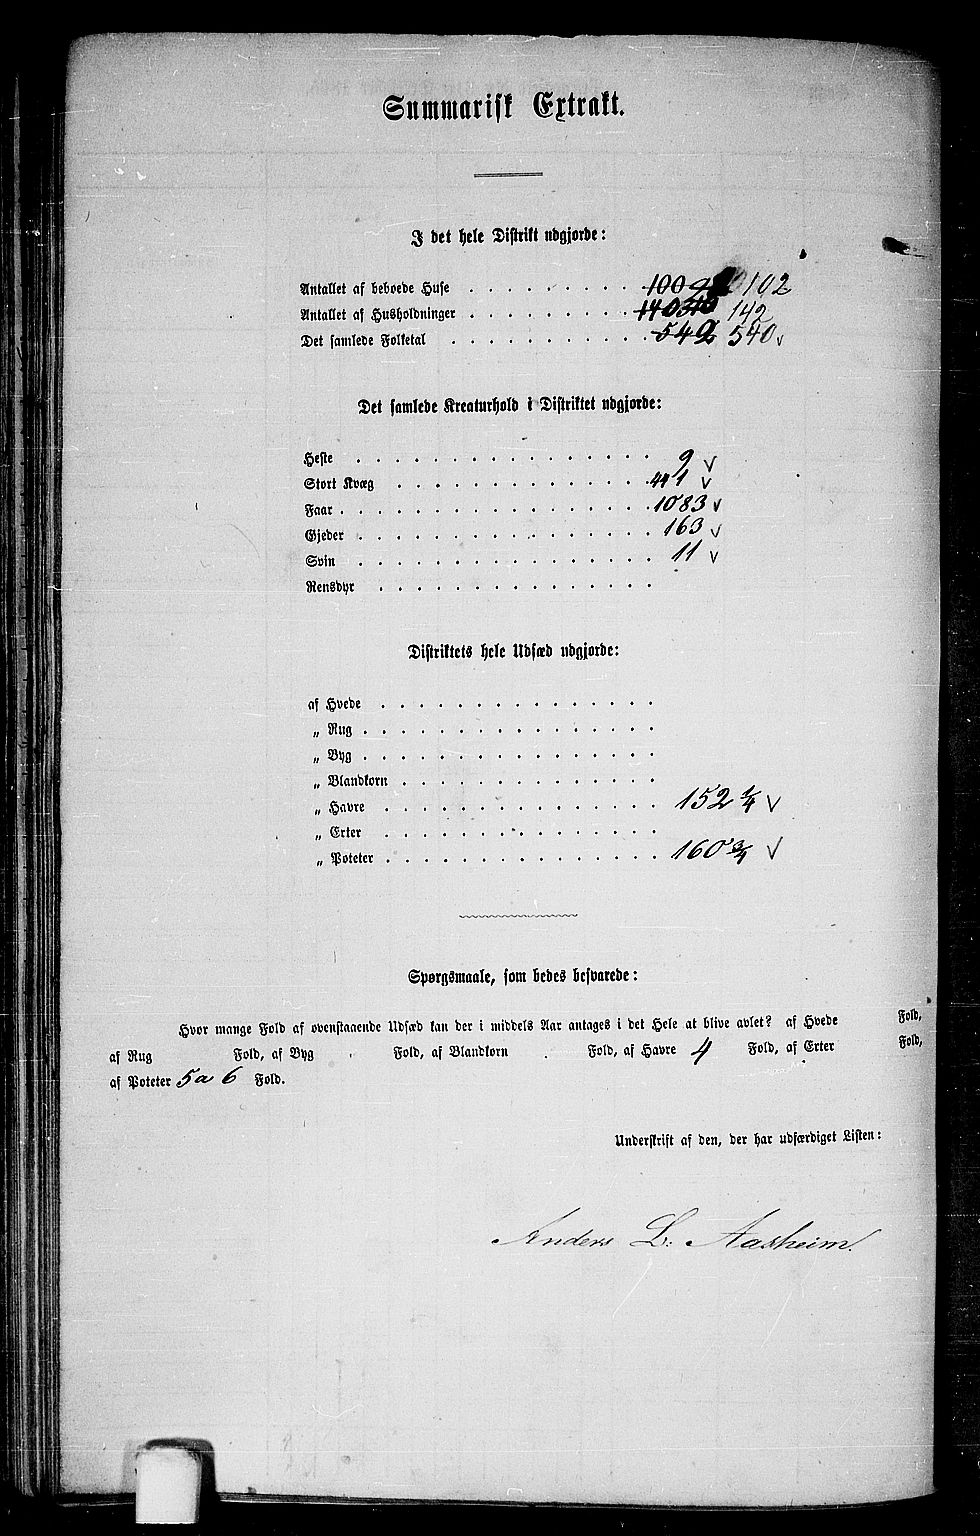 Summarisk Extrakt.
I det hele Distrikt udgjorde:
Antallet af beboede Huse 100 102
Antallet af Husholdninger 142
Det samlede Folketal 542 540
Det samlede Kreaturhold i Distriktet udgjorde:
Heste 9
Stort Kvæg 441
Faar 1083
Gjeder 163
Svin 11
Rensdyr
Distriktets hele Udsæd udgjorde:
af Hvede
„ Rug
„ Byg
„ Blandkorn
„ Havre 152 1/4
„ Erter
„ Poteter 160 3/4
Spørgsmaale, som bedes besvarede:
Hvor mange Fold af ovenstaaende Udsæd kan der i middels Aar antages i det Hele at blive avlet? af Hvede Fold,
af Rug Fold, af Byg Fold, af Blandkorn Fold, af Havre 4 Fold, af Erter Fold,
af Poteter 5 a 6 Fold.
Underskrift af den, der har udfærdiget Listen:
Anders L. Aasheim.